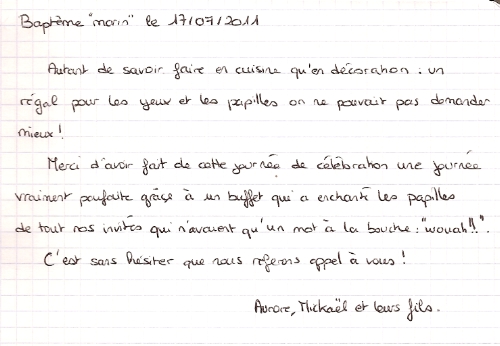 Baptême "marin" le 17/07/2011
Autant de savoir faire en cuisine qu'en décoration : un
régal pour les yeux et les papilles on ne pouvait pas demander
mieux !
Merci d'avoir fait de cette journée de célébration une journée
vraiment parfaite grâce à un buffet qui a enchanté les papilles
de tout nos invités qui n'avaient qu'un mot à la bouche : "wouah !!".
C'est sans hésiter que nous referons appel à vous !
Aurore, Mickaël et leurs fils.